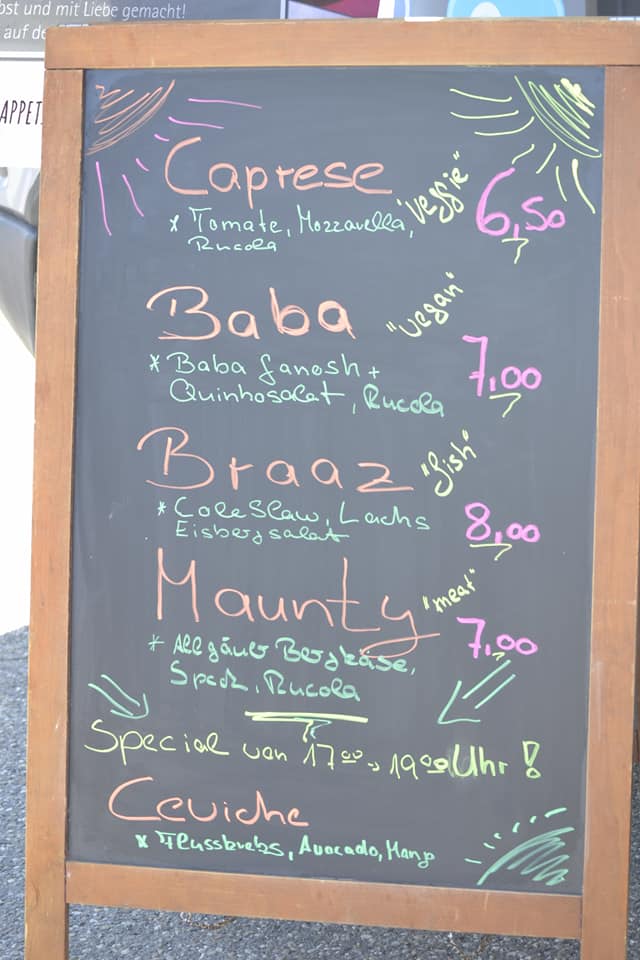 bst und mit Liebe gemacht!
auf de
APPET
Caprese "veggie" 6,50
* Tomate, Mozzarella,
Rucola
Baba "vegan" 7,00
* Baba Ganosh +
Quinhosalat, Rucola
Braaz "fish" 8,00
* ColeSlaw, Lachs
Eisbergsalat
Maunty "meat" 7,00
* Allgäuer Bergkäse,
Speck, Rucola
Special von 17⁰⁰ → 19⁰⁰ Uhr!
Ceviche
* Flusskrebs, Avocado, Mango